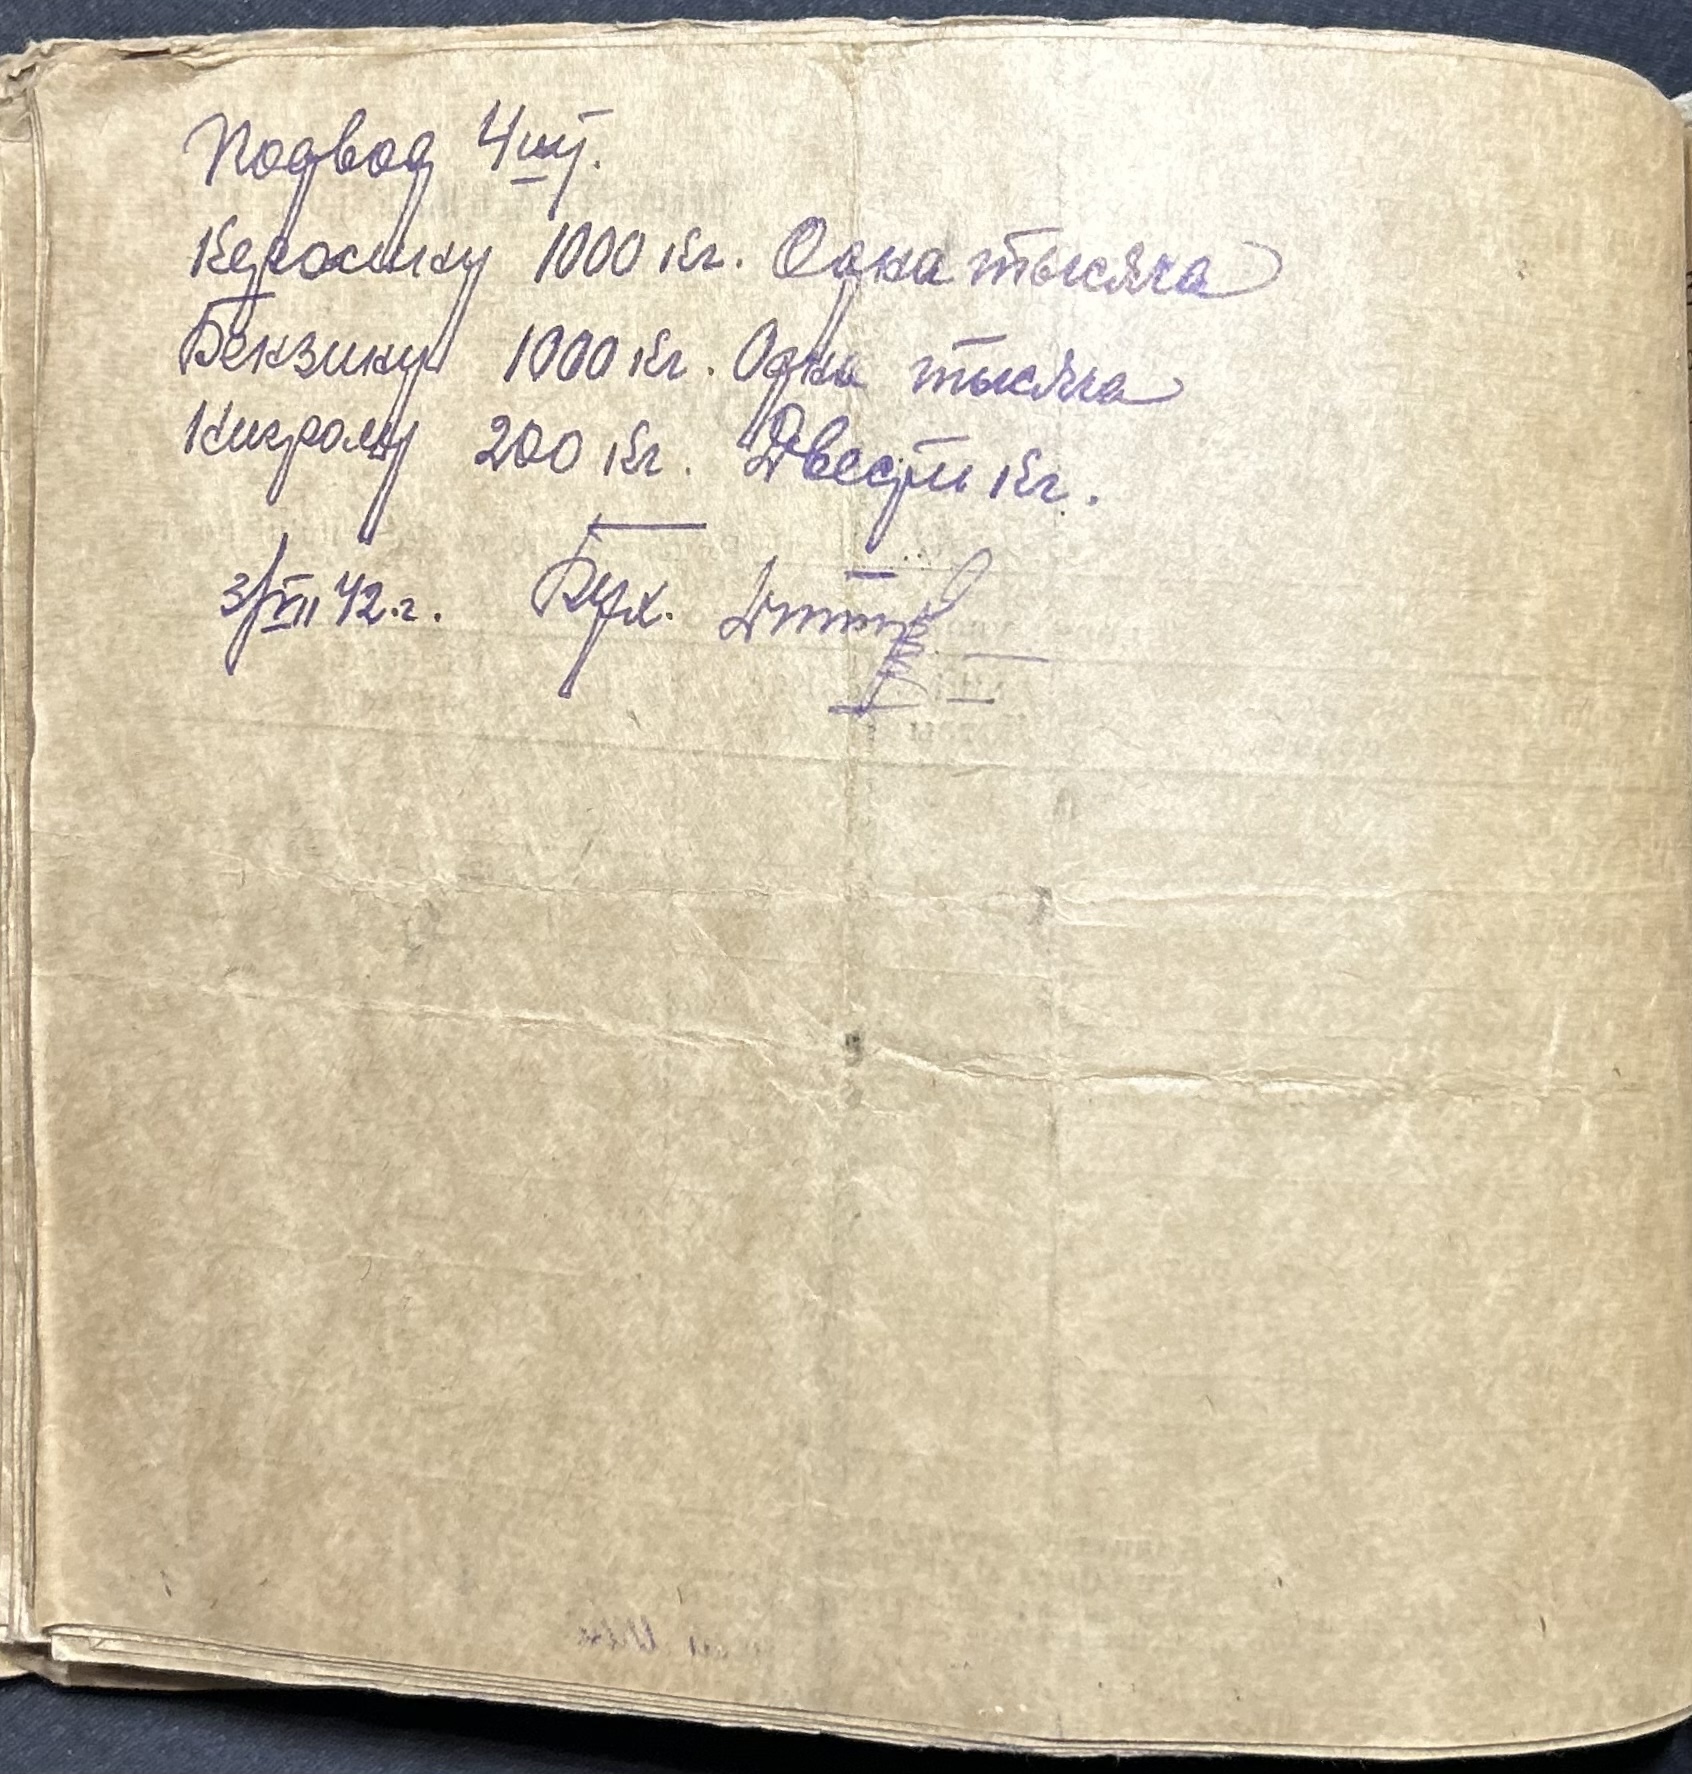 Подвод 4 шт.
Керосину 1000 кг. Одна тысяча
Бензину 1000 кг. Одна тысяча
Нигролу 200 кг. Двести кг.
3/VII 42.г. Бух.